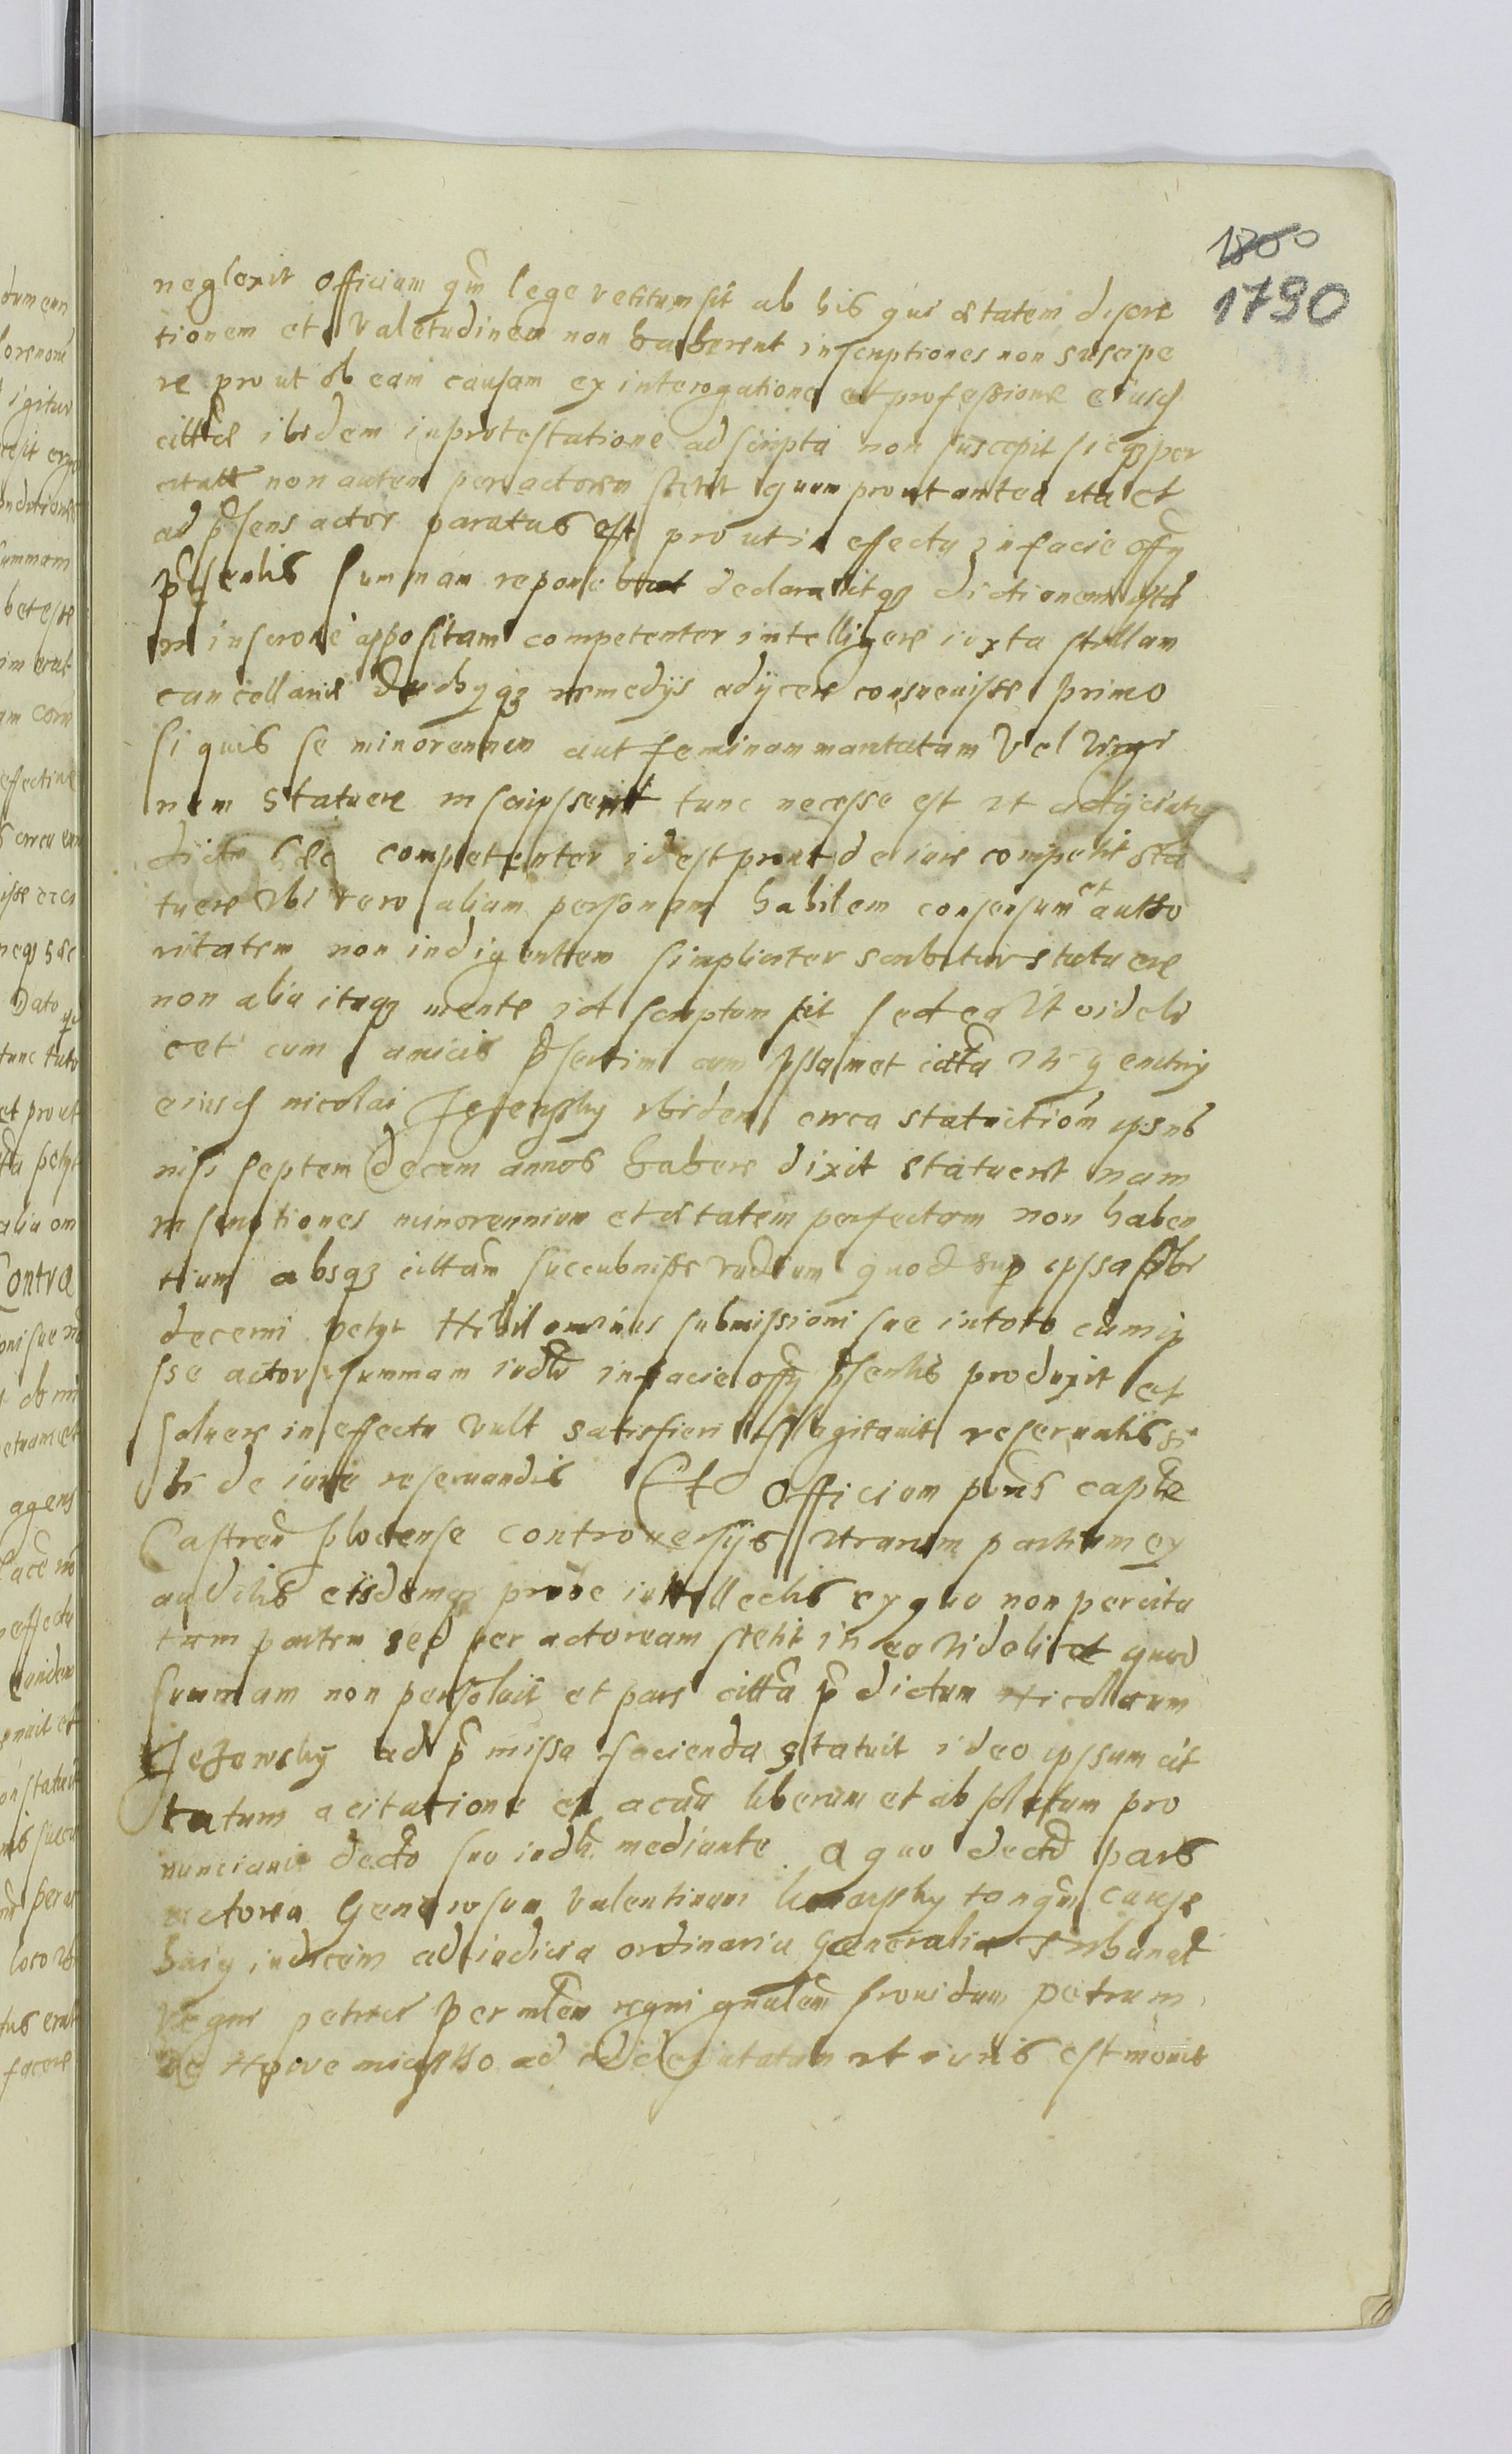 1800
1790
neglexit officium qm̃ lege vetitum sit ab his qui ætatem discre
tionem et valetudinem non haberent inscriptiones non suscipe
re prout ob eam causam ex interogatione et professione eiusd
cittæ ibidem in protestatione adscripta non suscepit sicqz per
citatt non autem per actorem stetit quem prout antea ita et
ad p̃sens actor paratus est prout in effectu in facie offy
p̃sentis summam reponebat declaravitqz dictionem
in inscrone appositam competenter intelligere iuxta stillum
cancellariæ duobyqz remedys adÿcere consuevisse primo
si quis se minorennem aut feminam maritatam vel virgi
nem statuere inscripsserit tunc necesse est ut adÿciatur
dictio hæc competenter id est prout de iure competit sta
tuere ubi vero aliam personam habilem consensum et autto
ritatem non indigenttem simpliciter scribitur statuere
non alia itaqz mente id scriptum sit sed ea ut videli
cet cum amicis p̃sertim cum ipssamet citta
eiusd nicolai Jezewsky ibidem circa statuitionem ipsius
nisi septem decem annos habere dixit statueret nam
inscriptiones minorennium et ætatem perfectam non haben
tium absqz cittam succubuisse vadium quod sup ipssa sibi
decerni petyt Nihilominus submissioni sue in toto cum ip
sse actor summam in facie offy p̃sentis produxit et
solvere in effectu vult satisfieri efflagitavit reservatis si
bi de iure reservandis Et Officium p̃ns capt̃le
Castren̄ plocense controversÿs utrarum partium ex
auditis eisdemqz probe intellectis ex quo non per cita
tam partem sed per actoream stetit in eo videlicet quod
summam non persoluit et pars citta p̃dictum Nicolaum
Jezewsky ad p̃missa facienda statuit ideo ipssum cit
tatum a citatione et liberum et absolutum pro
nunciavit decto suo mediante A quo decto pars
actorea Generosum Valentinum tanqm̃ cause
huiy iudicem ad iudicia ordinaria Generalia Tribunal
Regni per regni providum petrum
de ad id deputatum ut iuris est movit